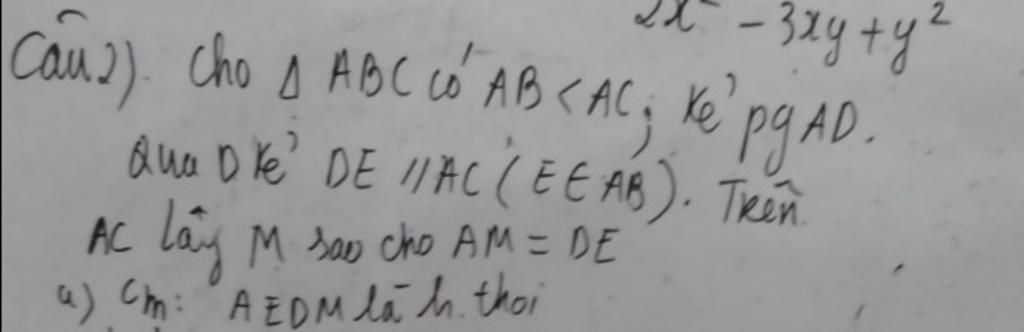 2x² - 3xy + y²
Câu 2). Cho Δ ABC có AB < AC; kẻ pg AD.
Qua D kẻ DE // AC ( E ∈ AB ). Trên
AC lấy M sao cho AM = DE
a) Cm: AEDM là h. thoi